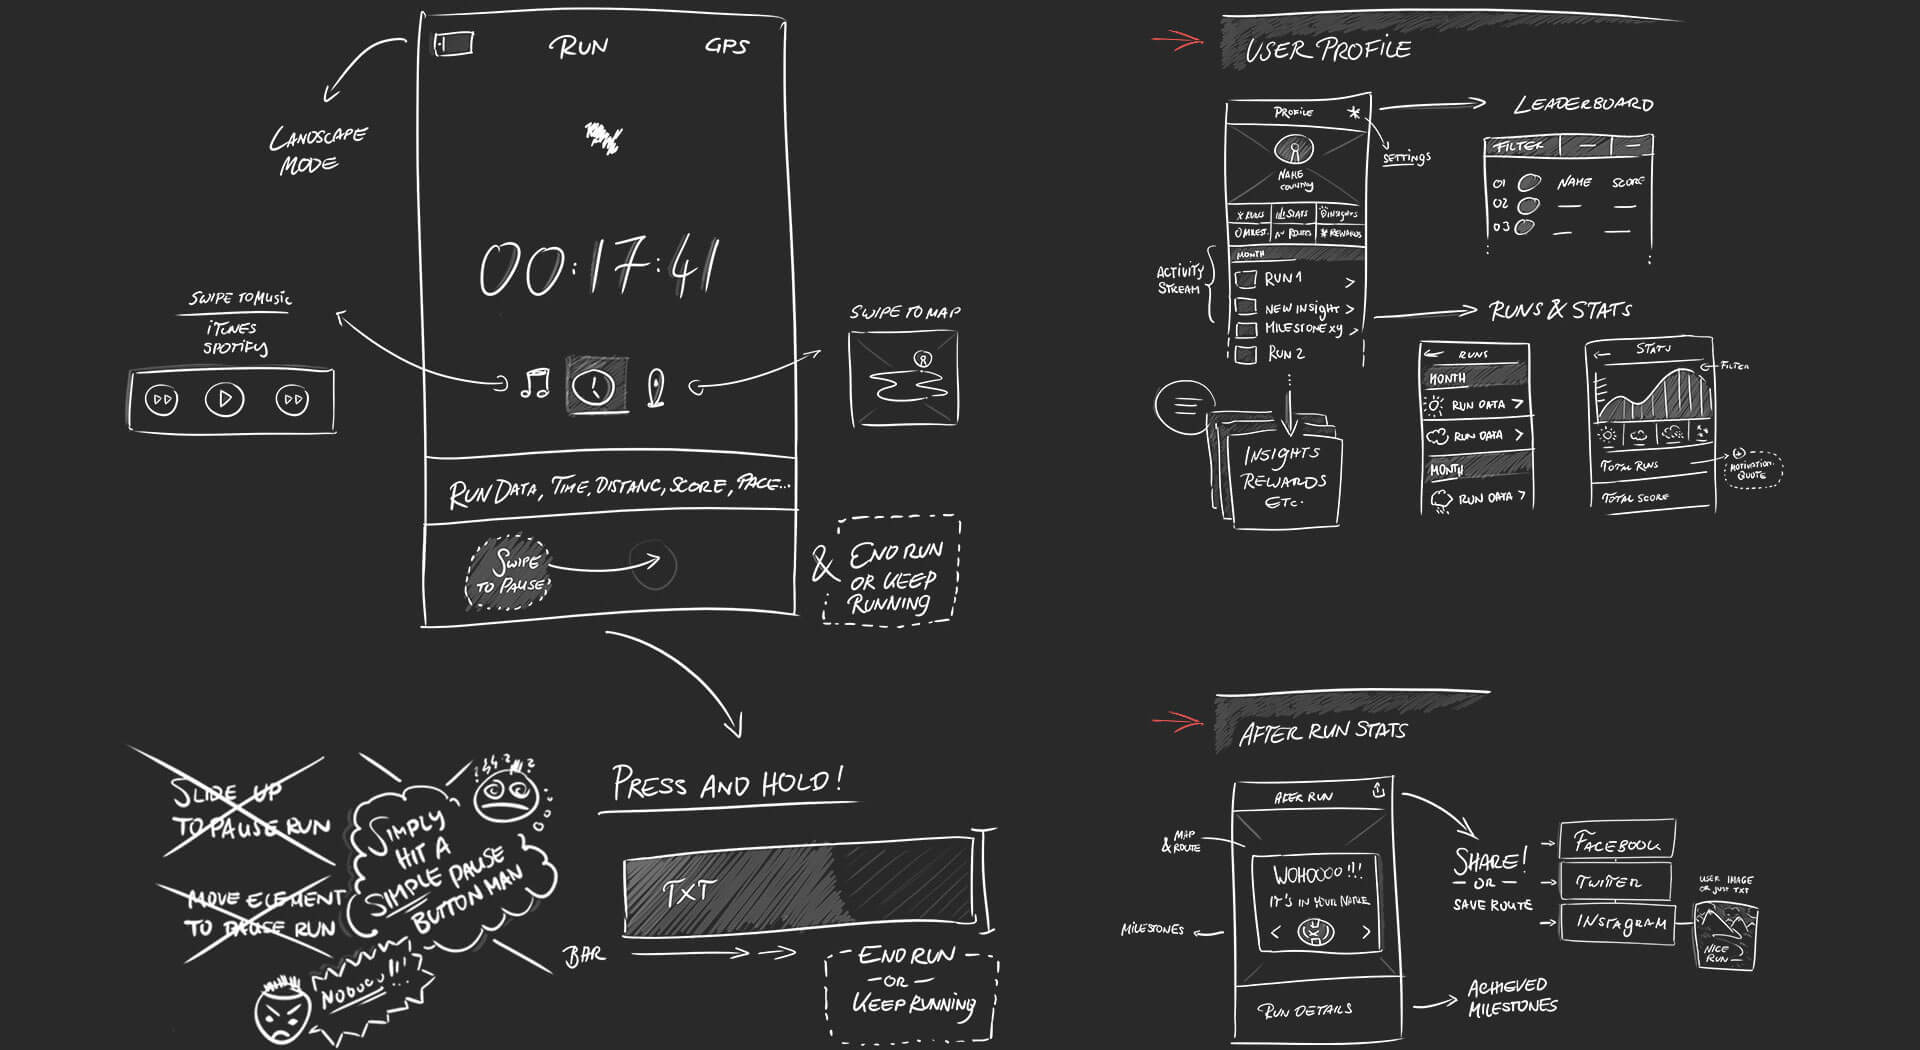 RUN
GPS
LANDSCAPE
MODE
00:17:41
SWIPE TO MUSIC
iTUNES
SPOTIFY
SWIPE TO MAP
RUN DATA, TIME, DISTANC, SCORE, PACE...
SWIPE
TO PAUSE
&
END RUN
OR KEEP
RUNNING
SLIDE UP
TO PAUSE RUN
MOVE ELEMENT
TO PAUSE RUN
SIMPLY
HIT A
SIMPLE PAUSE
BUTTON MAN
NOOOOO!!!
PRESS AND HOLD!
TXT
BAR
END RUN
- OR -
KEEP RUNNING
USER PROFILE
PROFILE
SETTINGS
NAME
COUNTRY
RUNS
STATS
INSIGHTS
MILEST.
ROUTES
REWARDS
MONTH
ACTIVITY
STREAM
RUN 1 >
NEW INSIGHT >
MILESTONE XY >
RUN 2
INSIGHTS
REWARDS
ETC.
LEADERBOARD
FILTER
01 NAME SCORE
02
03
RUNS & STATS
RUNS
MONTH
RUN DATA >
RUN DATA >
MONTH
RUN DATA >
STATS
FILTER
TOTAL RUNS
TOTAL SCORE
MOTIVATION.
QUOTE
AFTER RUN STATS
AFER RUN
MAP
& ROUTE
WOHOOOO !!!
IT'S IN YOUR NATURE
< >
MILESTONES
RUN DETAILS
ACHIEVED
MILESTONES
SHARE!
- OR -
SAVE ROUTE
FACEBOOK
TWITTER
INSTAGRAM
USER IMAGE
OR JUST TXT
NICE
RUN